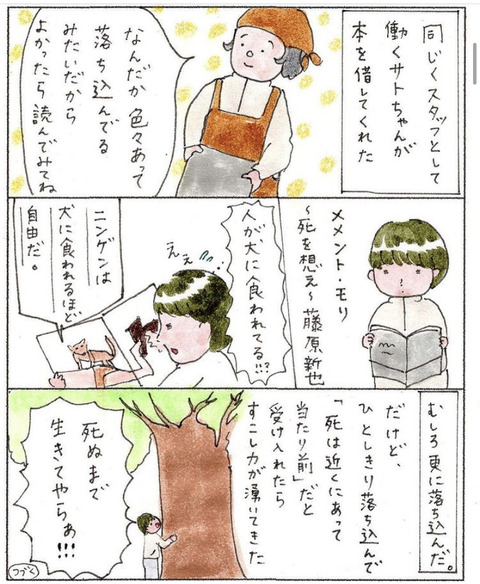 同じくスタッフとして
働くサトちゃんが
本を借してくれた
なんだか色々あって
落ち込んでる
みたいだから
よかったら読んでみてね
メメント・モリ
～死を想え～ 藤原新也
人が犬に食われてる!!?
えぇ
ニンゲンは
犬に食われるほど
自由だ。
むしろ更に落ち込んだ。
だけど、
ひとしきり落ち込んで
「死は近くにあって
当たり前」だと
受け入れたら
すこし力が湧いてきた
死ぬまで
生きてやらぁ!!!
つづく